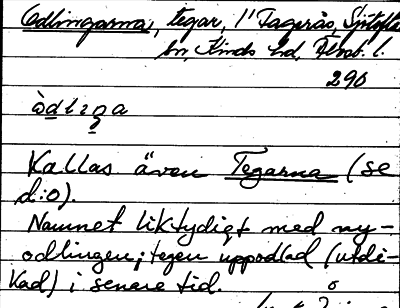 Odlingarna, tegar, i Tagerås, Sjötofta
sn, Kinds hd, Älvsb. l.
290
òdliŋa
Kallas även Tegarna (se
d:o).
Namnet liktydigt med ny-
odlingen; tegen uppodlad (utdi-
kad) i senare tid.